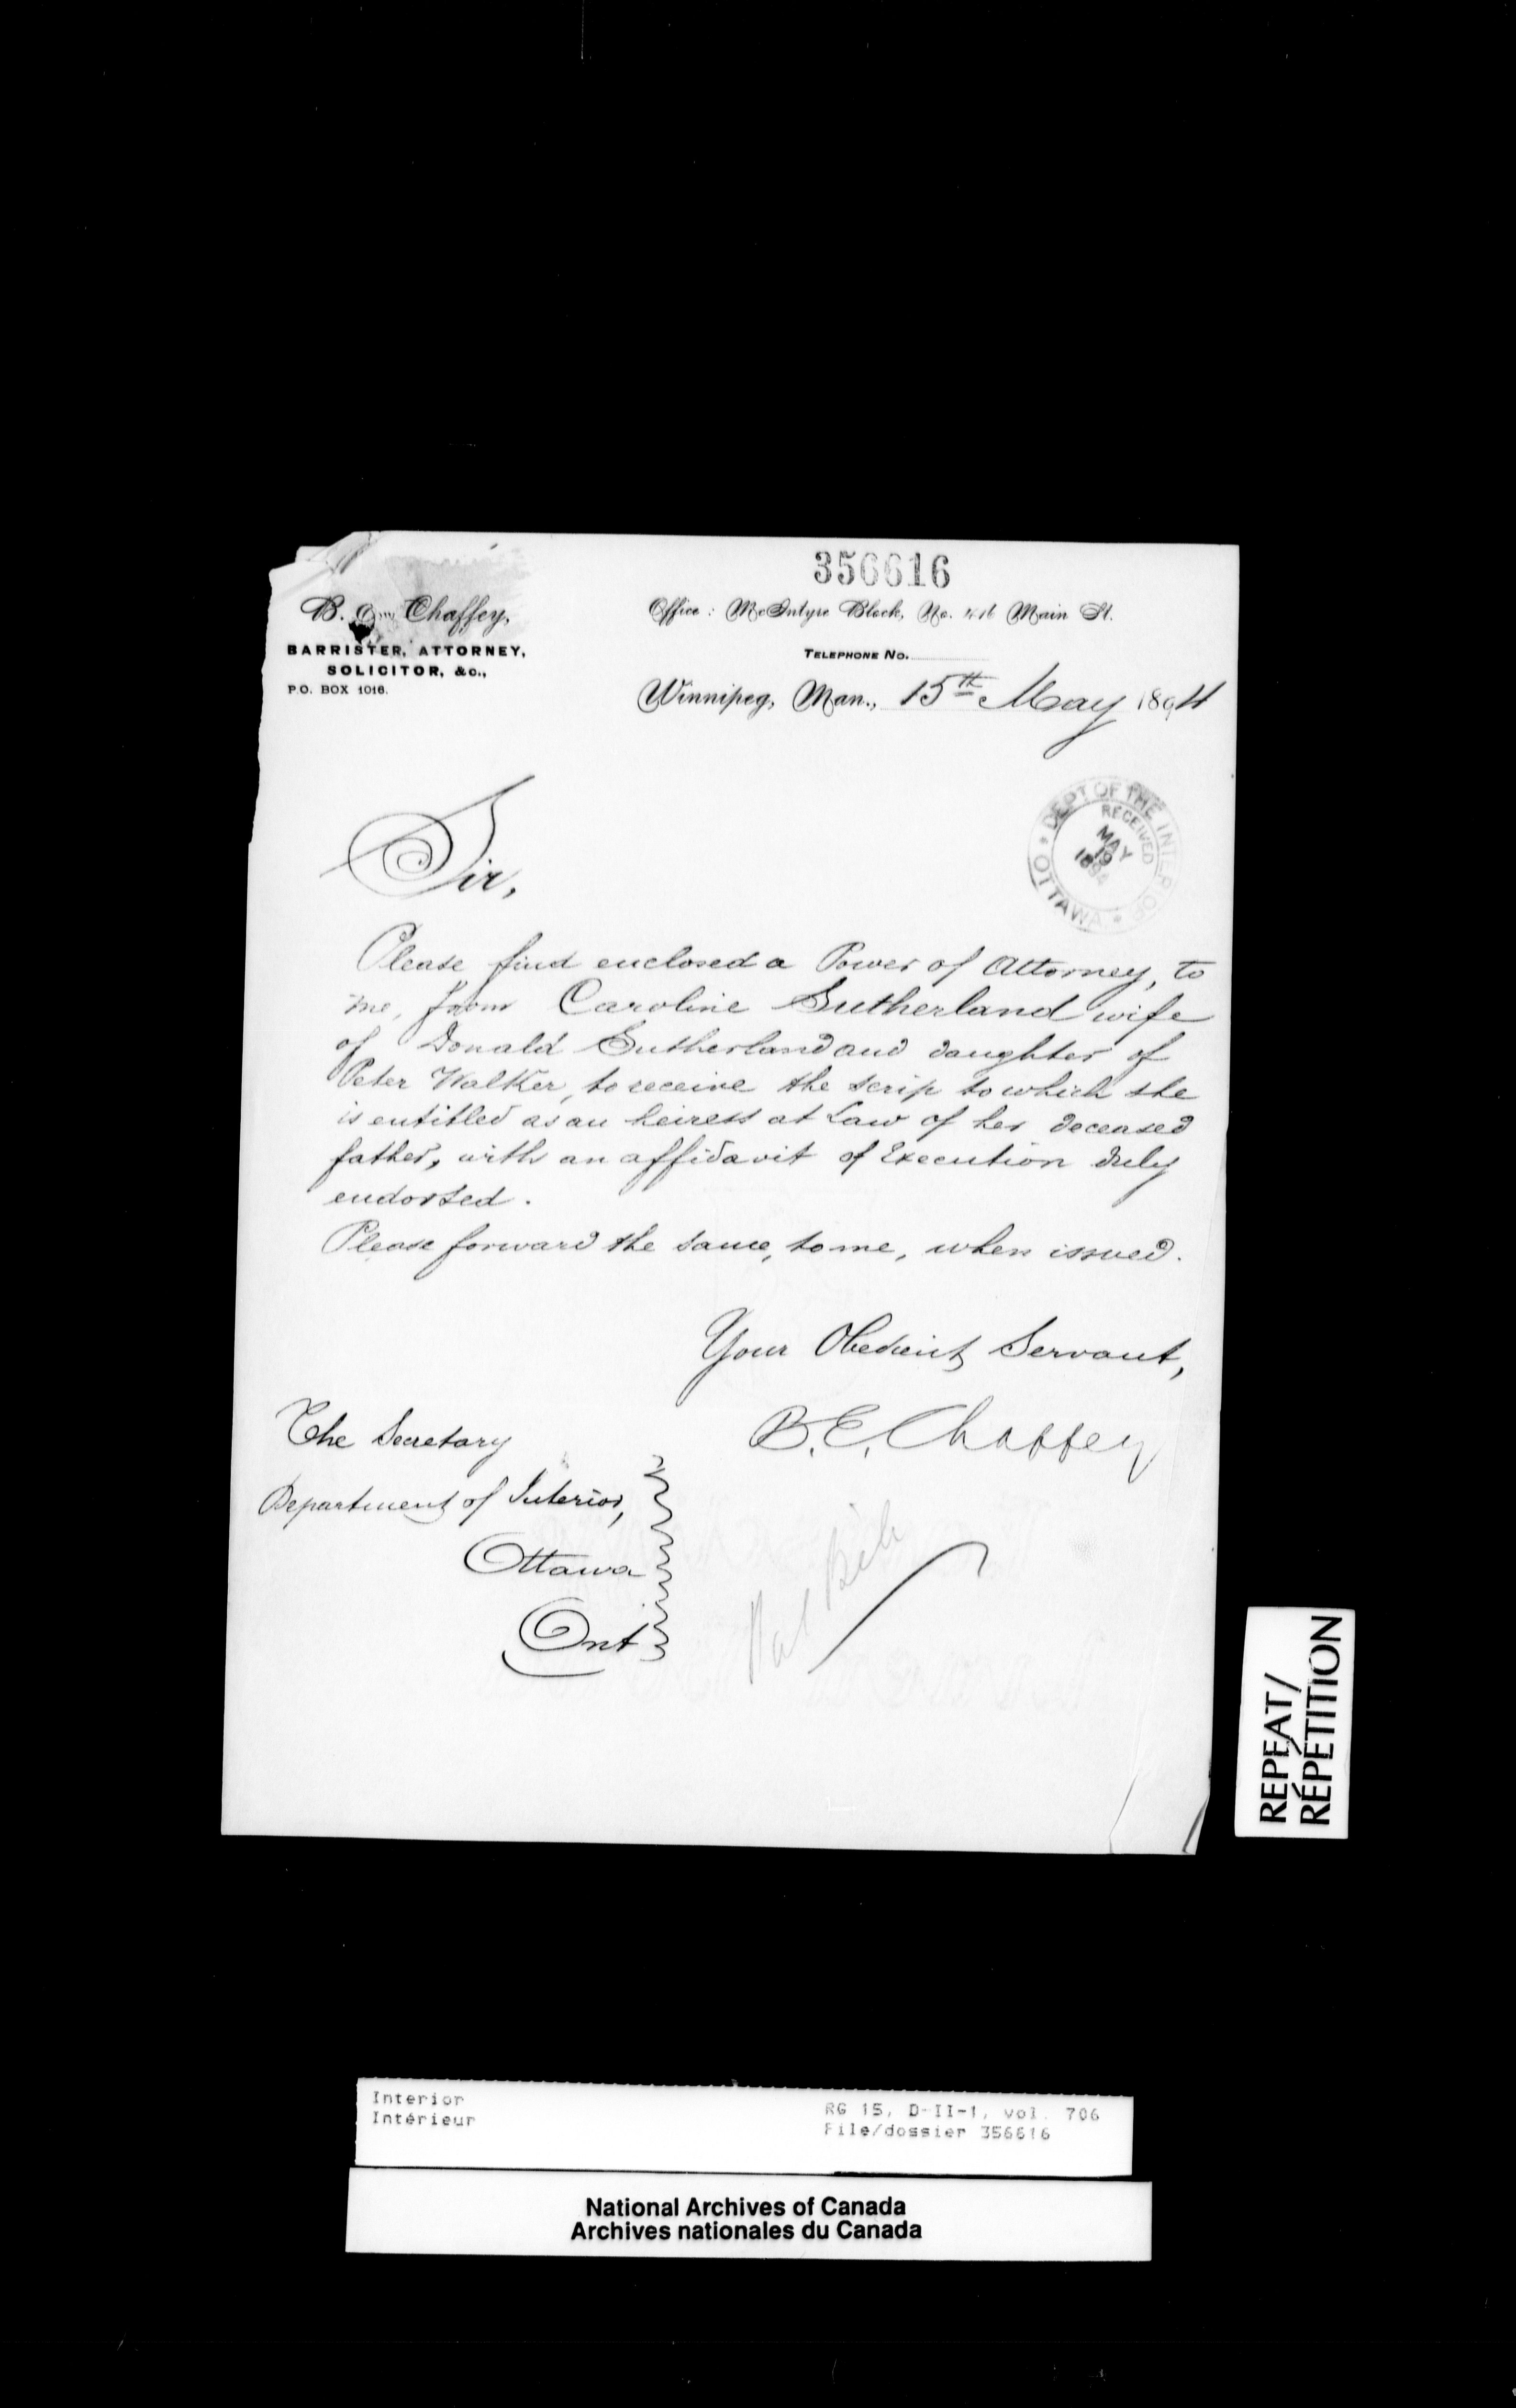 356616
B. E. Chaffey,
BARRISTER, ATTORNEY,
SOLICITOR, &c.,
P.O. BOX 1016.
Office: McIntyre Block, No. 416 Main St.
TELEPHONE No.
Winnipeg, Man., 15th May 1894
DEPT OF THE INTERIOR
RECEIVED
MAY
19
1894
OTTAWA
Sir,
Please find enclosed a Power of Attorney, to
me, from Caroline Sutherland wife
of Donald Sutherland and daughter of
Peter Walker, to receive the scrip to which she
is entitled as an heiress at Law of her deceased
father, with an affidavit of Execution duly
endorsed.
Please forward the same, to me, when issued.
Your Obedient Servant,
B. E. Chaffey
The Secretary
Department of Interior,
Ottawa
Ont
REPEAT/
RÉPÉTITION
Interior
Intérieur
RG 15, D-II-1, vol. 706
File/dossier 356616
National Archives of Canada
Archives nationales du Canada